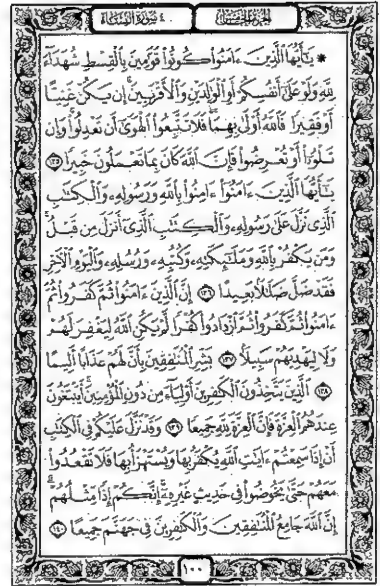 الجزء الخامس
٤ سورة النساء
* يَٰٓأَيُّهَا ٱلَّذِينَ ءَامَنُوا۟ كُونُوا۟ قَوَّٰمِينَ بِٱلْقِسْطِ شُهَدَآءَ
لِلَّهِ وَلَوْ عَلَىٰٓ أَنفُسِكُمْ أَوِ ٱلْوَٰلِدَيْنِ وَٱلْأَقْرَبِينَ إِن يَكُنْ غَنِيًّا
أَوْ فَقِيرًا فَٱللَّهُ أَوْلَىٰ بِهِمَا فَلَا تَتَّبِعُوا۟ ٱلْهَوَىٰٓ أَن تَعْدِلُوا۟ وَإِن
تَلْوُۥٓا۟ أَوْ تُعْرِضُوا۟ فَإِنَّ ٱللَّهَ كَانَ بِمَا تَعْمَلُونَ خَبِيرًا ١٣٥
يَٰٓأَيُّهَا ٱلَّذِينَ ءَامَنُوٓا۟ ءَامِنُوا۟ بِٱللَّهِ وَرَسُولِهِۦ وَٱلْكِتَٰبِ
ٱلَّذِى نَزَّلَ عَلَىٰ رَسُولِهِۦ وَٱلْكِتَٰبِ ٱلَّذِىٓ أَنزَلَ مِن قَبْلُ
وَمَن يَكْفُرْ بِٱللَّهِ وَمَلَٰٓئِكَتِهِۦ وَكُتُبِهِۦ وَرُسُلِهِۦ وَٱلْيَوْمِ ٱلْءَاخِرِ
فَقَدْ ضَلَّ ضَلَٰلًۢا بَعِيدًا ١٣٦ إِنَّ ٱلَّذِينَ ءَامَنُوا۟ ثُمَّ كَفَرُوا۟ ثُمَّ
ءَامَنُوا۟ ثُمَّ كَفَرُوا۟ ثُمَّ ٱزْدَادُوا۟ كُفْرًا لَّمْ يَكُنِ ٱللَّهُ لِيَغْفِرَ لَهُمْ
وَلَا لِيَهْدِيَهُمْ سَبِيلًۢا ١٣٧ بَشِّرِ ٱلْمُنَٰفِقِينَ بِأَنَّ لَهُمْ عَذَابًا أَلِيمًا
١٣٨ ٱلَّذِينَ يَتَّخِذُونَ ٱلْكَٰفِرِينَ أَوْلِيَآءَ مِن دُونِ ٱلْمُؤْمِنِينَ أَيَبْتَغُونَ
عِندَهُمُ ٱلْعِزَّةَ فَإِنَّ ٱلْعِزَّةَ لِلَّهِ جَمِيعًا ١٣٩ وَقَدْ نَزَّلَ عَلَيْكُمْ فِى ٱلْكِتَٰبِ
أَنْ إِذَا سَمِعْتُمْ ءَايَٰتِ ٱللَّهِ يُكْفَرُ بِهَا وَيُسْتَهْزَأُ بِهَا فَلَا تَقْعُدُوا۟
مَعَهُمْ حَتَّىٰ يَخُوضُوا۟ فِى حَدِيثٍ غَيْرِهِۦٓ إِنَّكُمْ إِذًا مِّثْلُهُمْ
إِنَّ ٱللَّهَ جَامِعُ ٱلْمُنَٰفِقِينَ وَٱلْكَٰفِرِينَ فِى جَهَنَّمَ جَمِيعًا ١٤٠
١٠٠